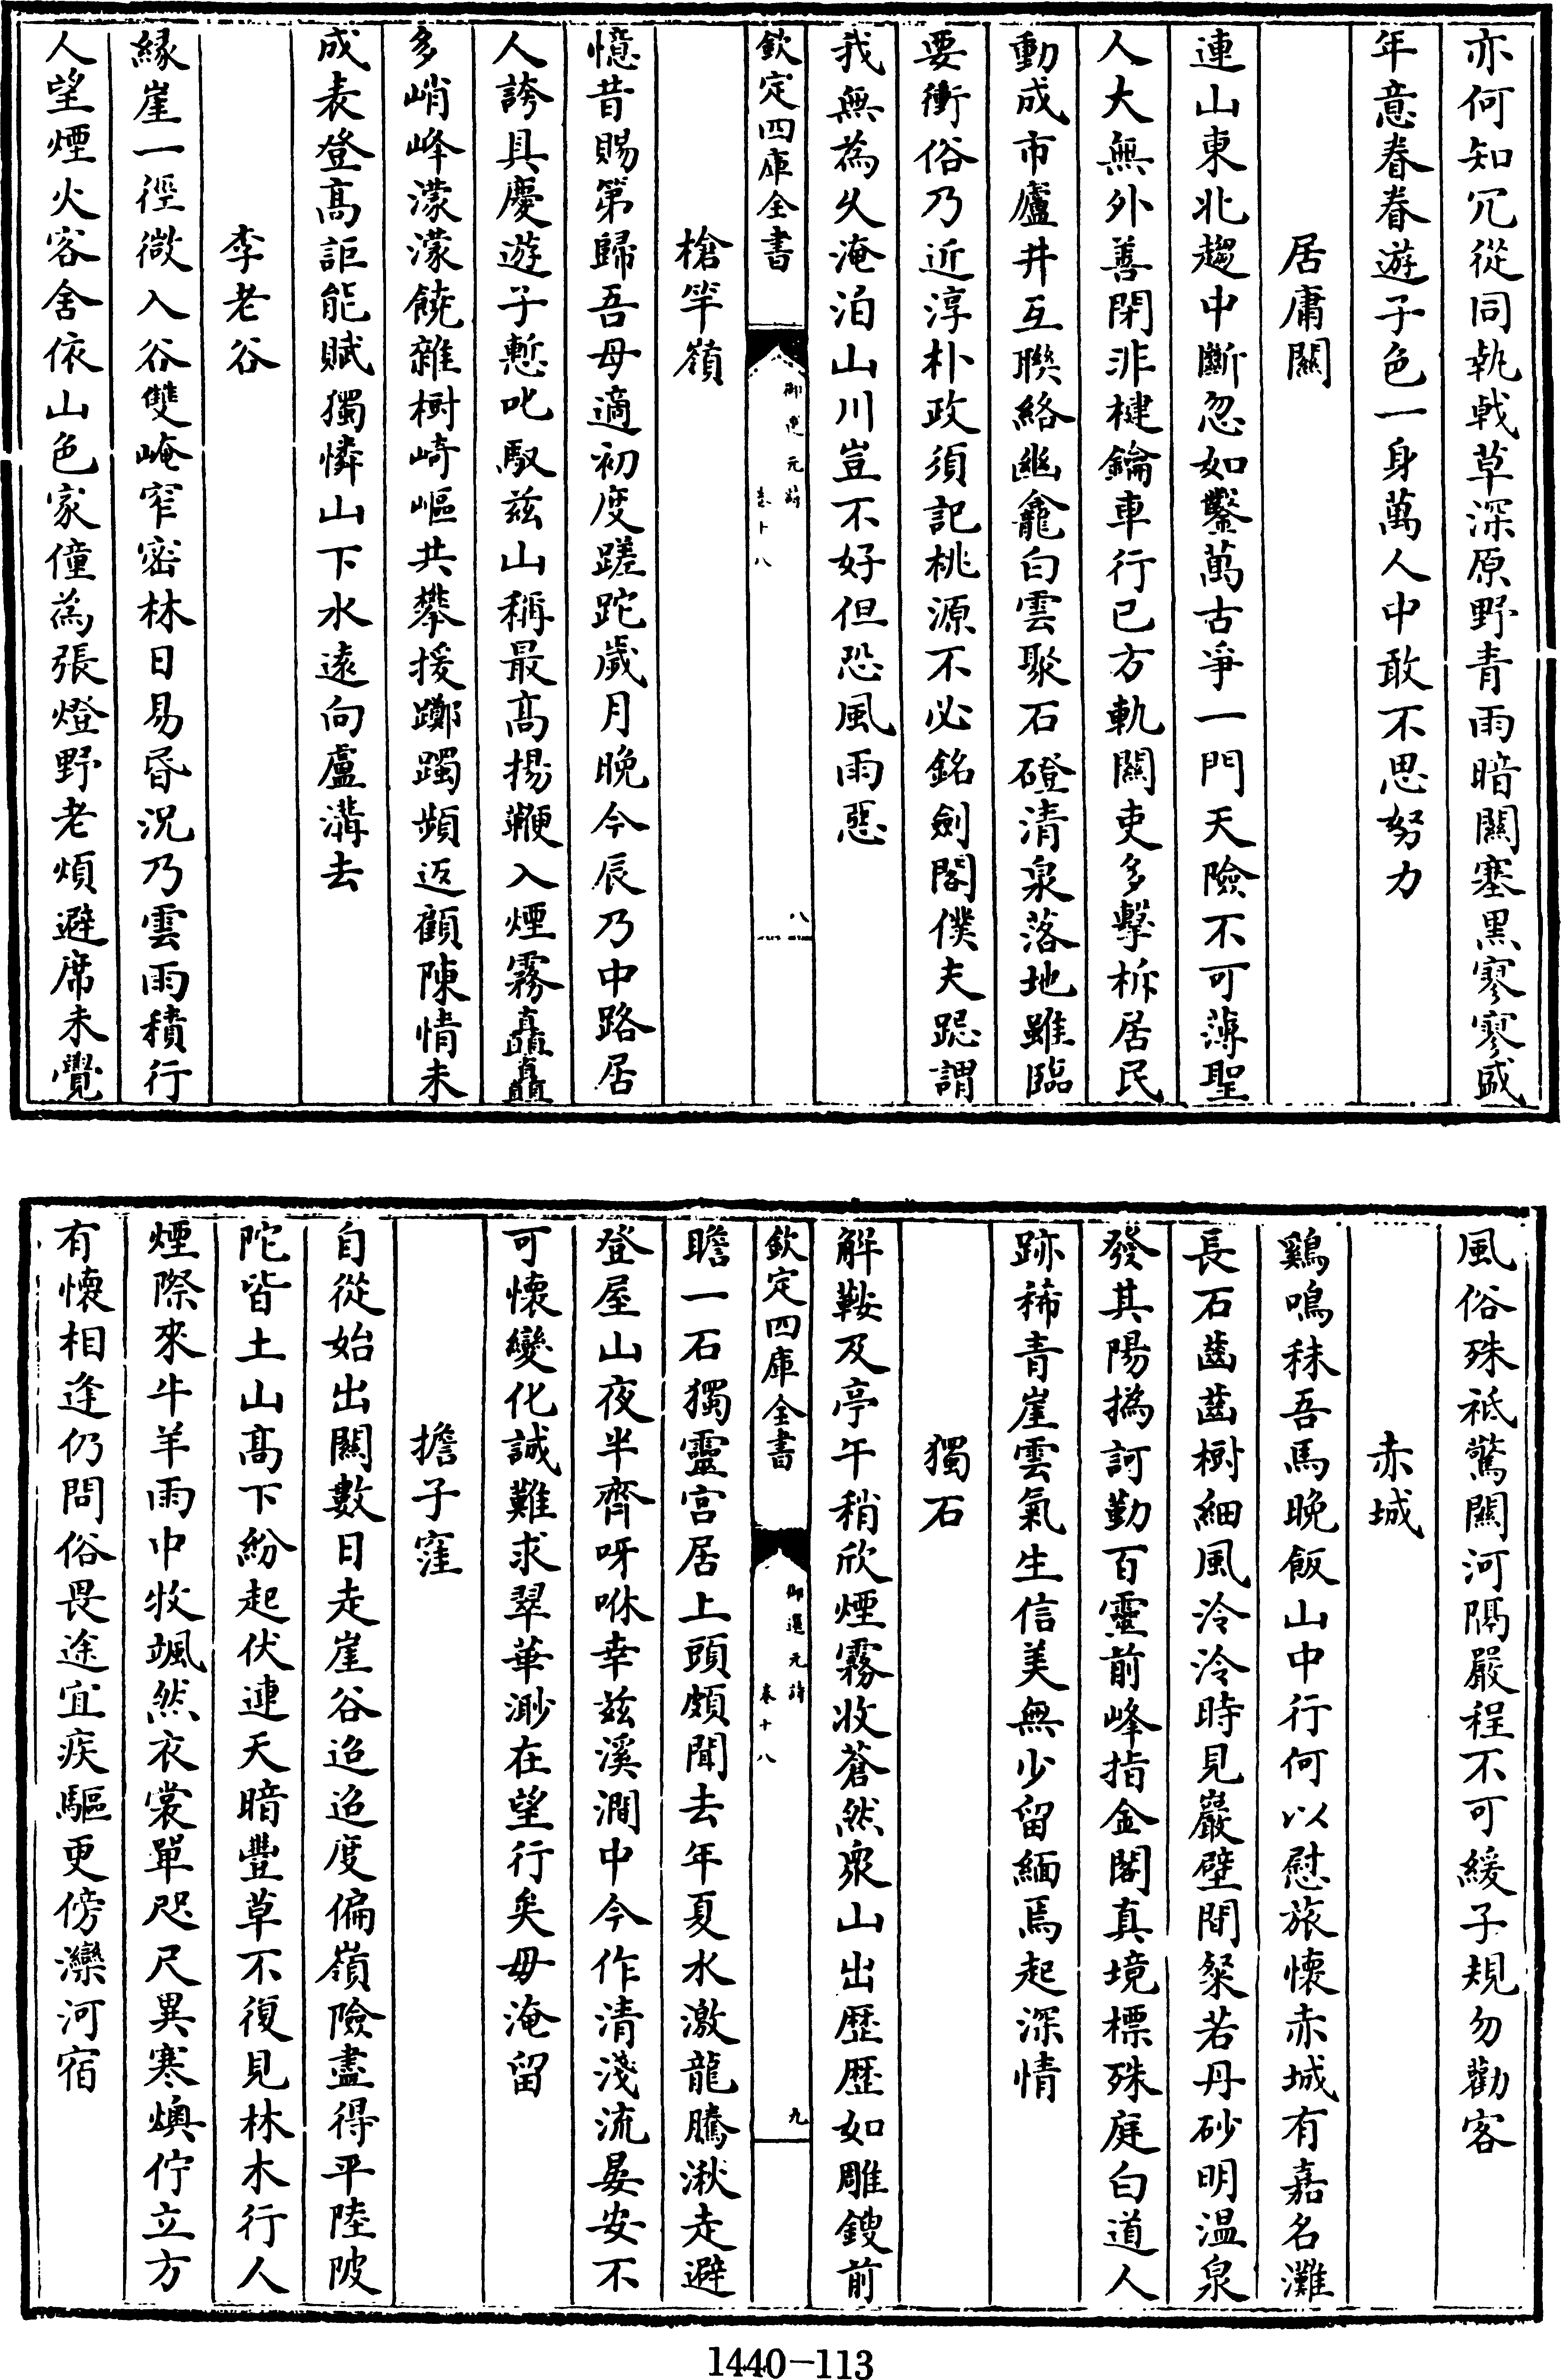 亦何知冗從同執㦸草深原野青雨暗關塞黒寥寥盛
年意眷眷遊子色一身萬人中敢不思努力
居庸關
連山東北趨中斷忽如鑿萬古爭一門天險不可薄聖
人大無外善閉非楗鑰車行已方軌關吏多擊柝居民
動成市廬井互聯絡幽龕白雲聚石磴清泉落地雖臨
要衝俗乃近淳朴政須記桃源不必銘劍閣僕夫跽謂
我無為乆淹泊山川豈不好但恐風雨惡
欽定四庫全書
御選元詩
卷十八
八
槍竿嶺
憶昔賜第歸吾母適初度蹉跎歲月晚今辰乃中路居
人誇具慶遊子慙叱馭兹山稱最髙揚鞭入煙霧矗矗
多峭峰濛濛饒雜樹崎嶇共攀援躑躅頻返顧陳情未
成表登髙詎能賦獨憐山下水遠向盧溝去
李老谷
緣崖一徑微入谷雙崦窄密林日易昏況乃雲雨積行
人望煙火客舍依山色家僮為張燈野老煩避席未覺
風俗殊祇驚關河隔嚴程不可緩子規勿勸客
赤城
鷄鳴秣吾馬晚飯山中行何以慰旅懷赤城有嘉名灘
長石齒齒樹細風泠泠時見巖壁間粲若丹砂明温泉
發其陽撝訶勤百靈前峰指金閣真境標殊庭白道人
跡稀青崖雲氣生信美無少留緬焉起深情
獨石
解鞍及亭午稍欣煙霧收蒼然衆山出歴歴如雕鎪前
欽定四庫全書
御選元詩
卷十八
九
瞻一石獨靈宫居上頭頗聞去年夏水激龍騰湫走避
登屋山夜半齊呀咻幸兹溪澗中今作清淺流晏安不
可懷變化誠難求翠華渺在望行矣毋淹留
擔子窪
自從始出關數日走崖谷迢迢度偏嶺險盡得平陸陂
陀皆土山髙下紛起伏連天暗豐草不復見林木行人
煙際來牛羊雨中牧颯然衣裳單咫尺異寒燠佇立方
有懷相逢仍問俗畏途宜疾驅更傍灤河宿
1440-113